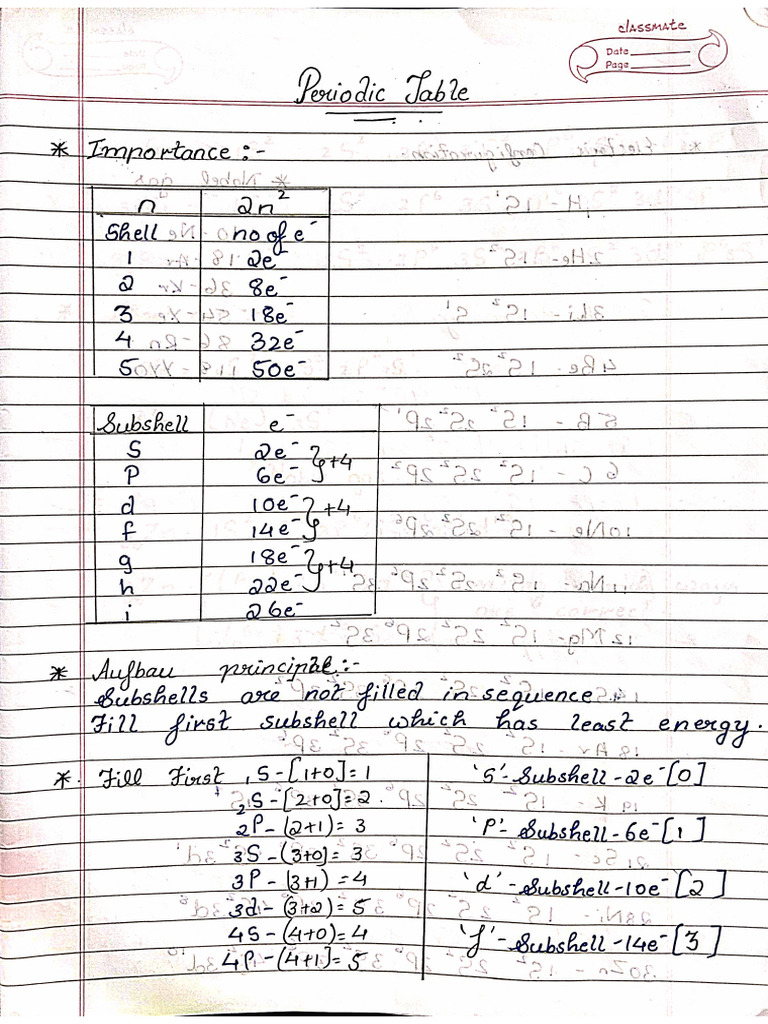 classmate
Date
Page
Periodic Table
* Importance :-
n 2n²
Shell no of e⁻
1 2e⁻
2 8e⁻
3 18e⁻
4 32e⁻
5 50e⁻
Subshell e⁻
S 2e⁻
P 6e⁻ } +4
d 10e⁻
f 14e⁻ } +4
g 18e⁻
h 22e⁻ } +4
i 26e⁻
* Aufbau principle :-
Subshells are not filled in sequence.
Fill first subshell which has least energy.
* Fill First 1S - [1+0] = 1
2S - [2+0] = 2
2P - (2+1) = 3
3S - (3+0) = 3
3P - (3+1) = 4
3d - (3+2) = 5
4S - (4+0) = 4
4P - (4+1] = 5
'S' - Subshell - 2e⁻ [0]
'P' - Subshell - 6e⁻ [1]
'd' - Subshell - 10e⁻ [2]
'f' - Subshell - 14e⁻ [3]